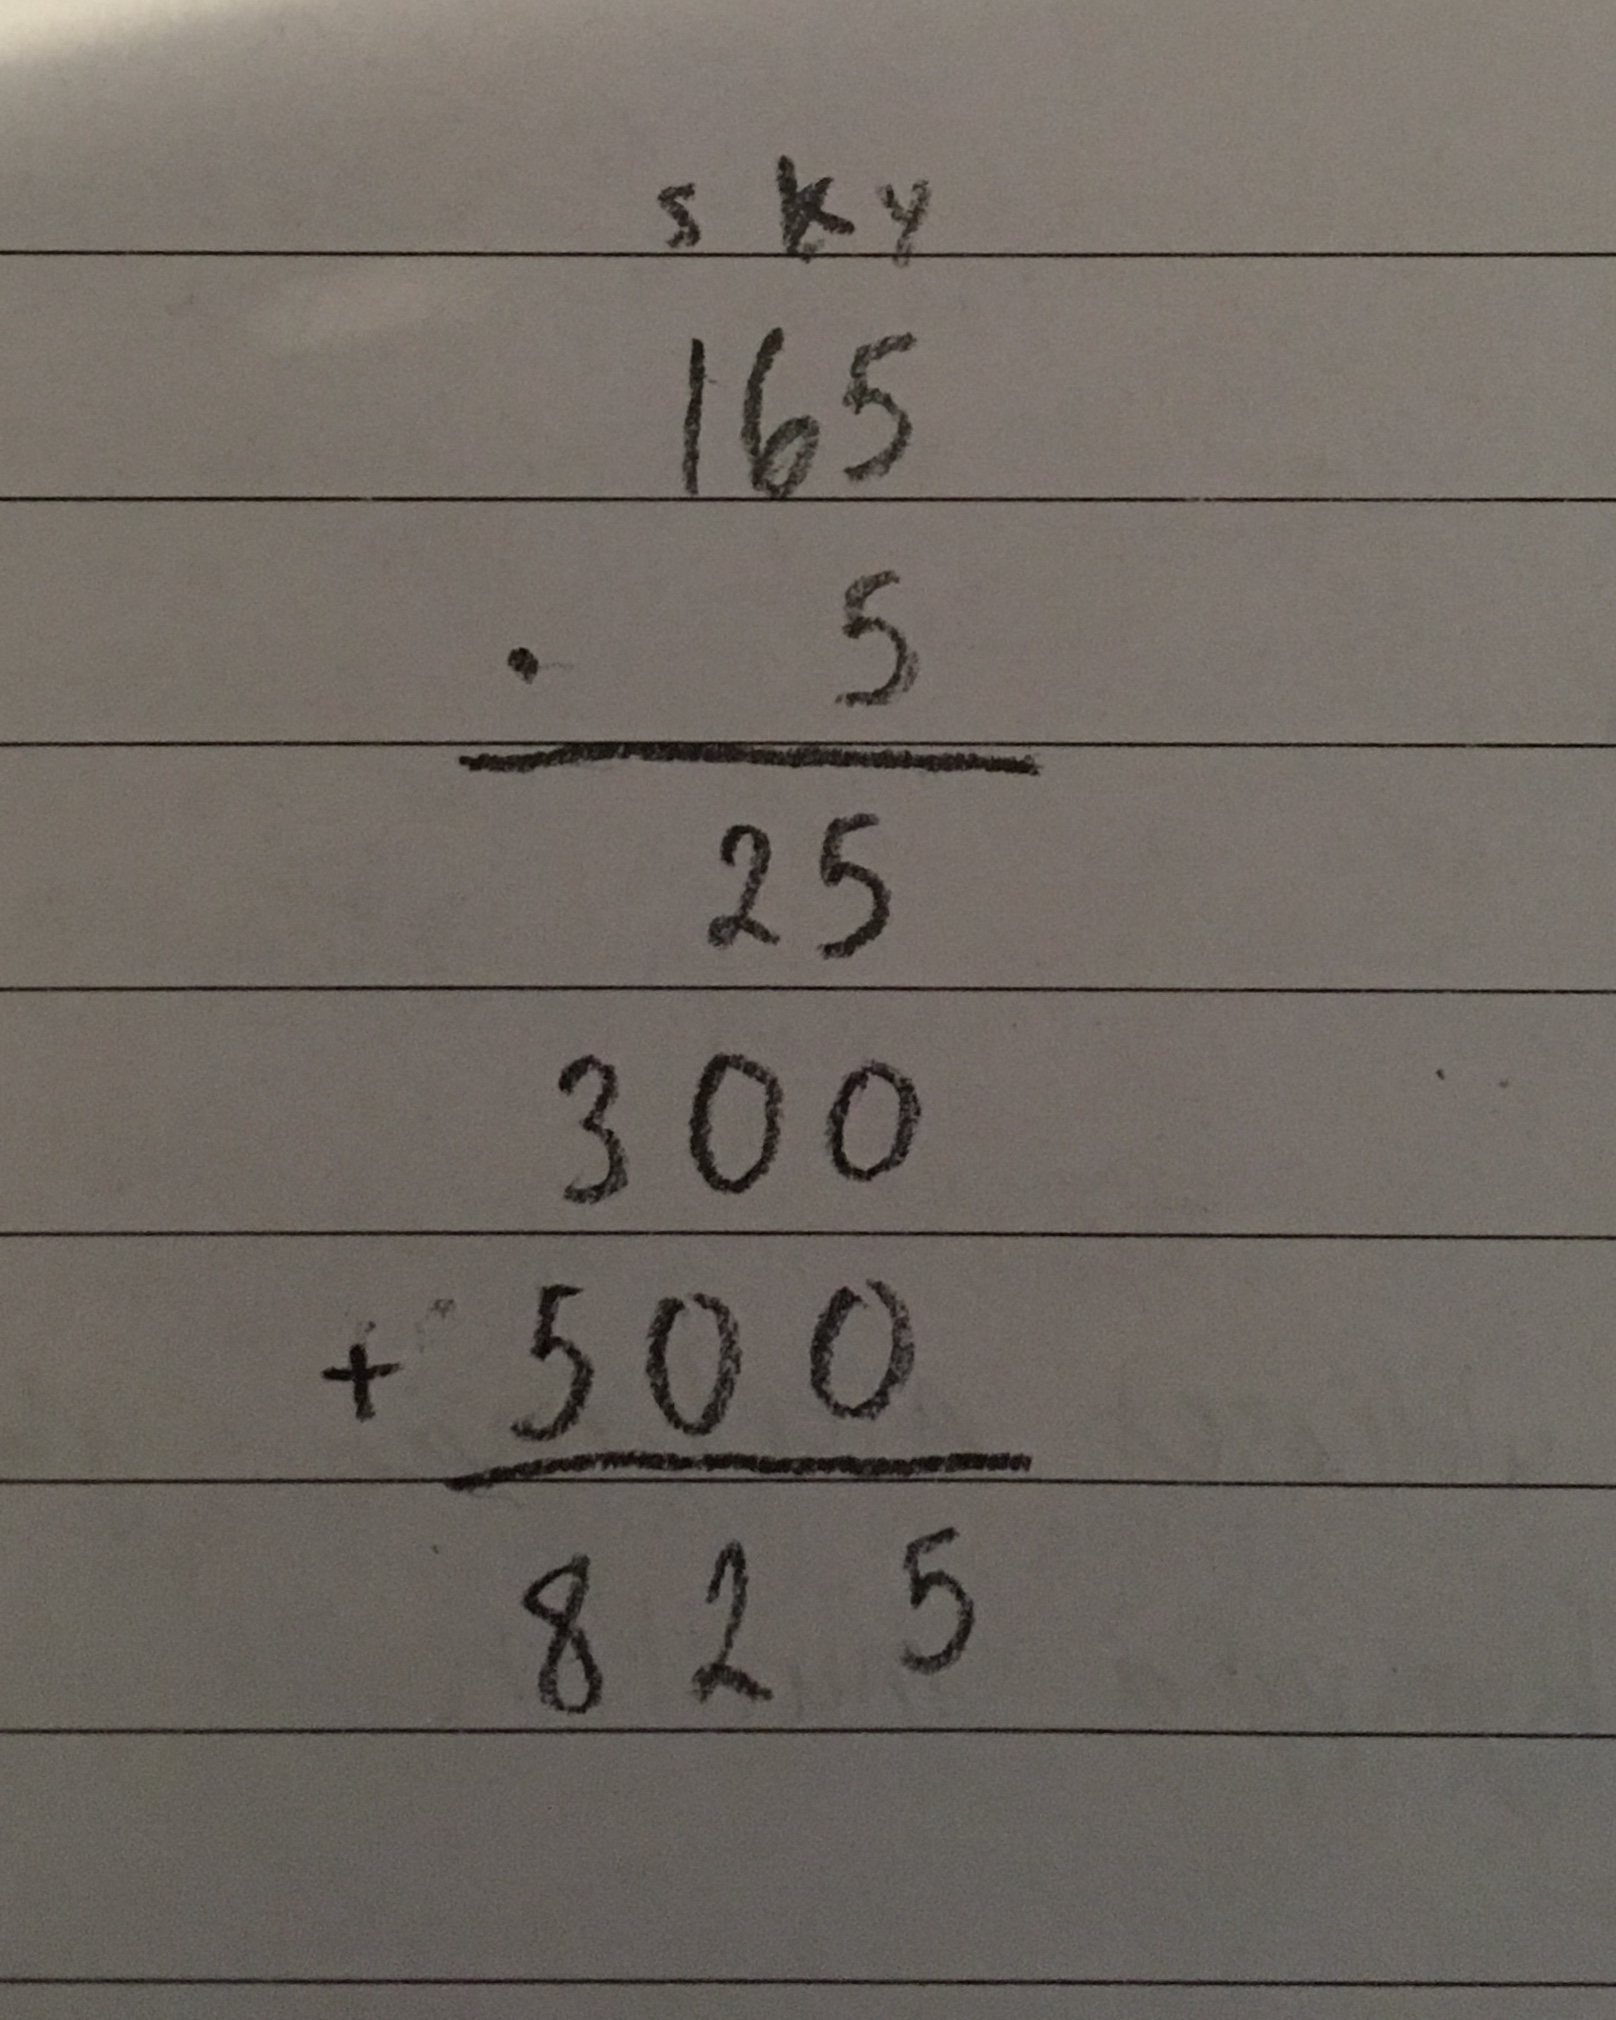 s k y
165
· 5
25
300
+ 500
825